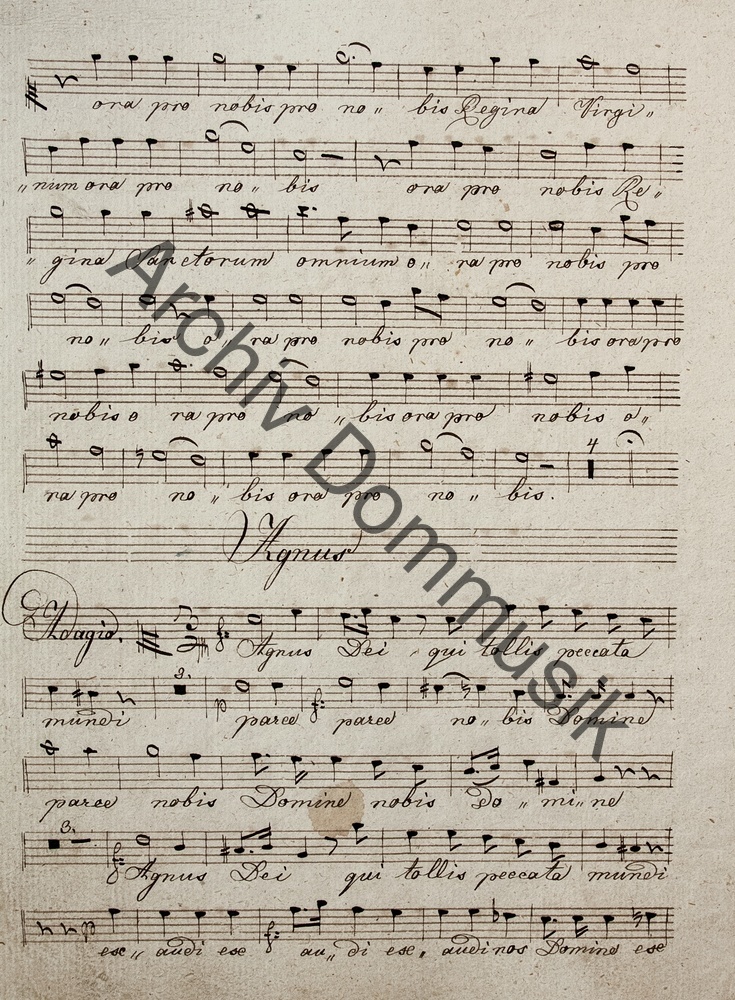 ora pro nobis pro no " bis Regina Virgi "
" num ora pro no " bis ora pro nobis Re "
" gina Sanctorum omnium o " ra pro nobis pro
no " bis o " ra pro nobis pro no " bis ora pro
nobis o ra pro no " bis ora pro nobis o "
4
ra pro no " bis ora pro no " bis.
Agnus
Adagio. f: Agnus Dei qui tollis peccata
3.
mundi p parce f: parce no " bis Domine
parce nobis Domine nobis Do " mi " ne
3.
f: Agnus Dei qui tollis peccata mundi
p f:
exe " audi exe au " di exe " audi nos Domine exe
Archiv Dommusik